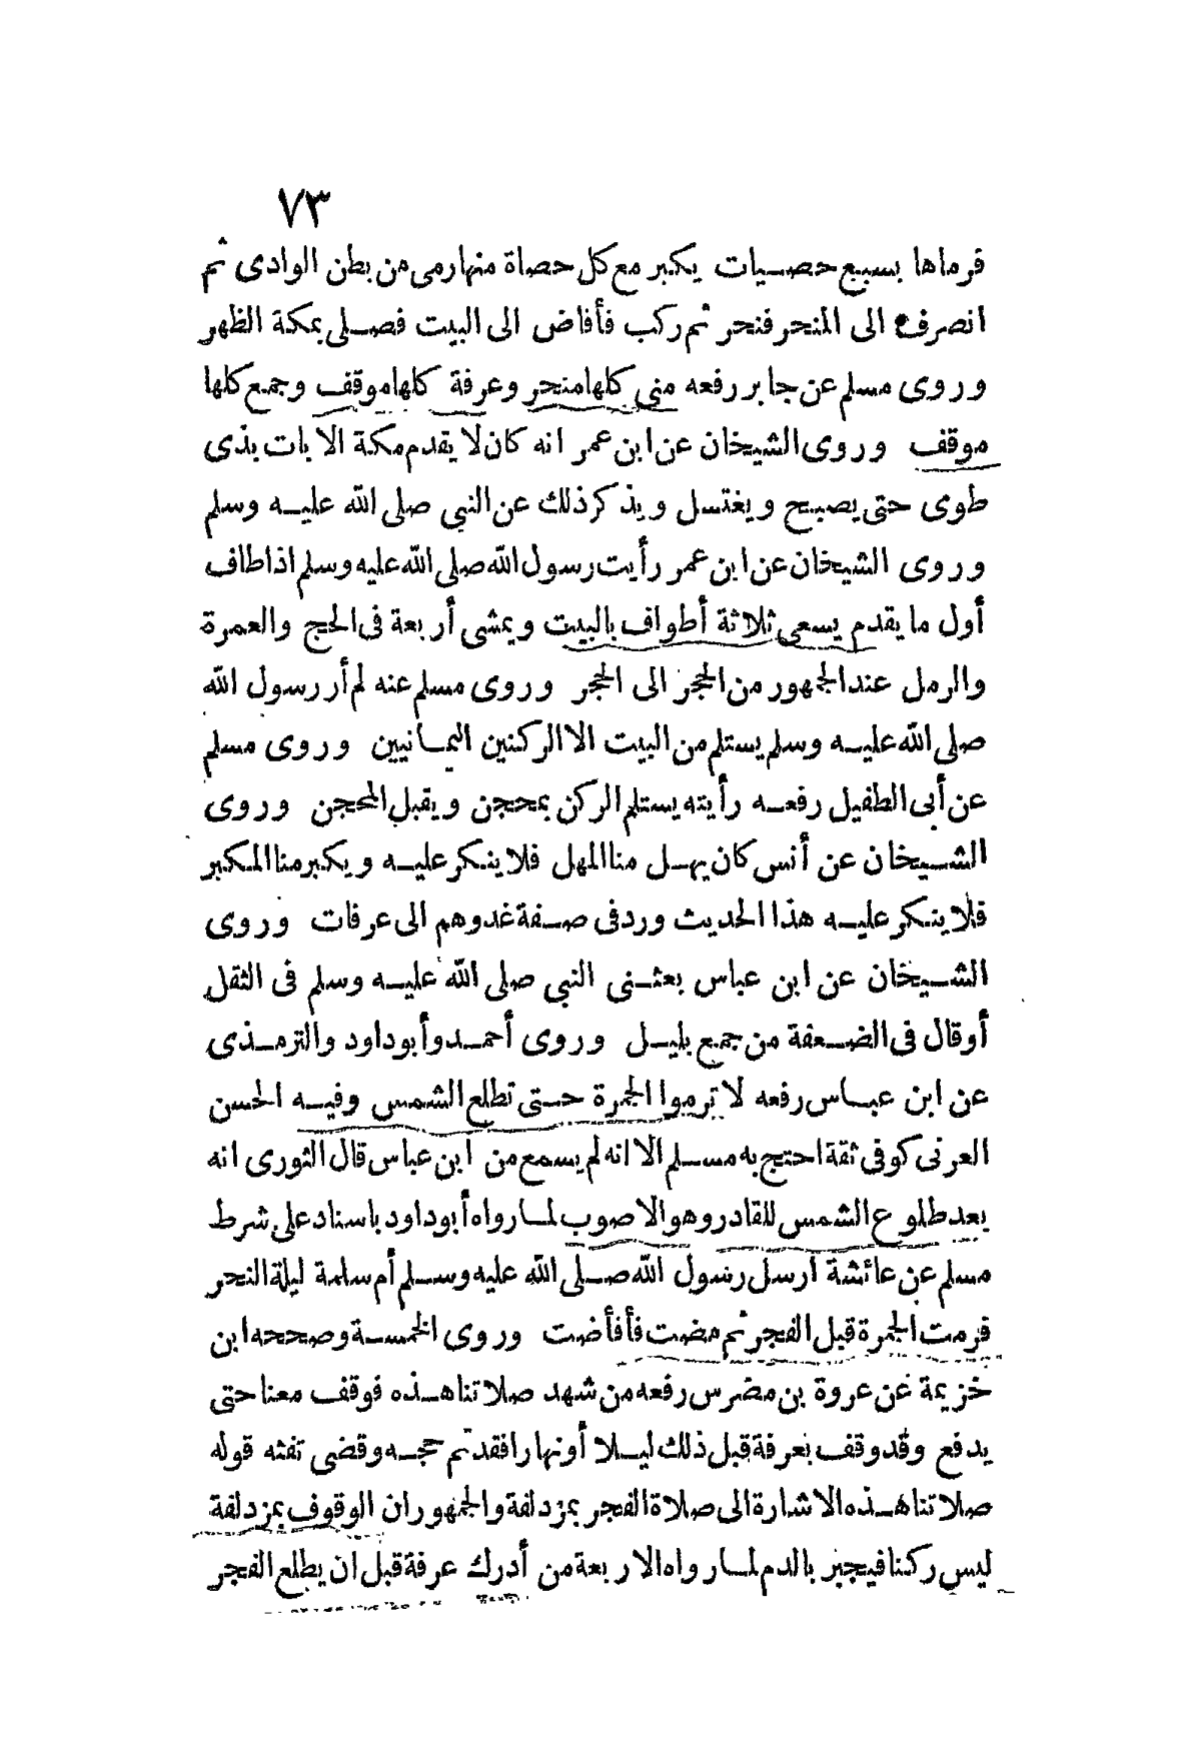 ٧٣
فرماها بسبع حصيات يكبر مع كل حصاة منها رمى من بطن الوادى ثم
انصرف الى المنحر فنحر ثم ركب فأفاض الى البيت فصلى بمكة الظهر
وروى مسلم عن جابر رفعه منى كلها منحر وعرفة كلها موقف وجمع كلها
موقف وروى الشيخان عن ابن عمر انه كان لا يقدم مكة الا بات بذى
طوى حتى يصبح ويغتسل ويذكر ذلك عن النبي صلى الله عليه وسلم
وروى الشيخان عن ابن عمر رأيت رسول الله صلى الله عليه وسلم اذا طاف
أول ما يقدم يسعى ثلاثة أطواف بالبيت ويمشى أربعة فى الحج والعمرة
والرمل عند الجمهور من الحجر الى الحجر وروى مسلم عنه لم أر رسول الله
صلى الله عليه وسلم يستلم من البيت الا الركنين اليمانيين وروى مسلم
عن أبى الطفيل رفعه رأيته يستلم الركن بمحجن ويقبل المحجن وروى
الشيخان عن أنس كان يهل منا المهل فلا ينكر عليه ويكبر منا المكبر
فلا ينكر عليه هذا الحديث ورد فى صفة غدوهم الى عرفات وروى
الشيخان عن ابن عباس بعثنى النبي صلى الله عليه وسلم فى الثقل
أو قال فى الضعفة من جمع بليل وروى أحمد وأبو داود والترمذى
عن ابن عباس رفعه لا ترموا الجمرة حتى تطلع الشمس وفيه الحسن
العرنى كوفى ثقة احتج به مسلم الا انه لم يسمع من ابن عباس قال الثورى انه
بعد طلوع الشمس للقادر وهو الاصوب لما رواه أبو داود باسناد على شرط
مسلم عن عائشة ارسل رسول الله صلى الله عليه وسلم أم سلمة ليلة النحر
فرمت الجمرة قبل الفجر ثم مضت فأفاضت وروى الخمسة وصححه ابن
خزيمة عن عروة بن مضرس رفعه من شهد صلاتنا هذه فوقف معنا حتى
يدفع وقد وقف بعرفة قبل ذلك ليلا أو نهارا فقد تم حجه وقضى تفثه قوله
صلاتنا هذه الاشارة الى صلاة الفجر بمزدلفة والجمهور ان الوقوف بمزدلفة
ليس ركنا فيجبر بالدم لما رواه الاربعة من أدرك عرفة قبل ان يطلع الفجر